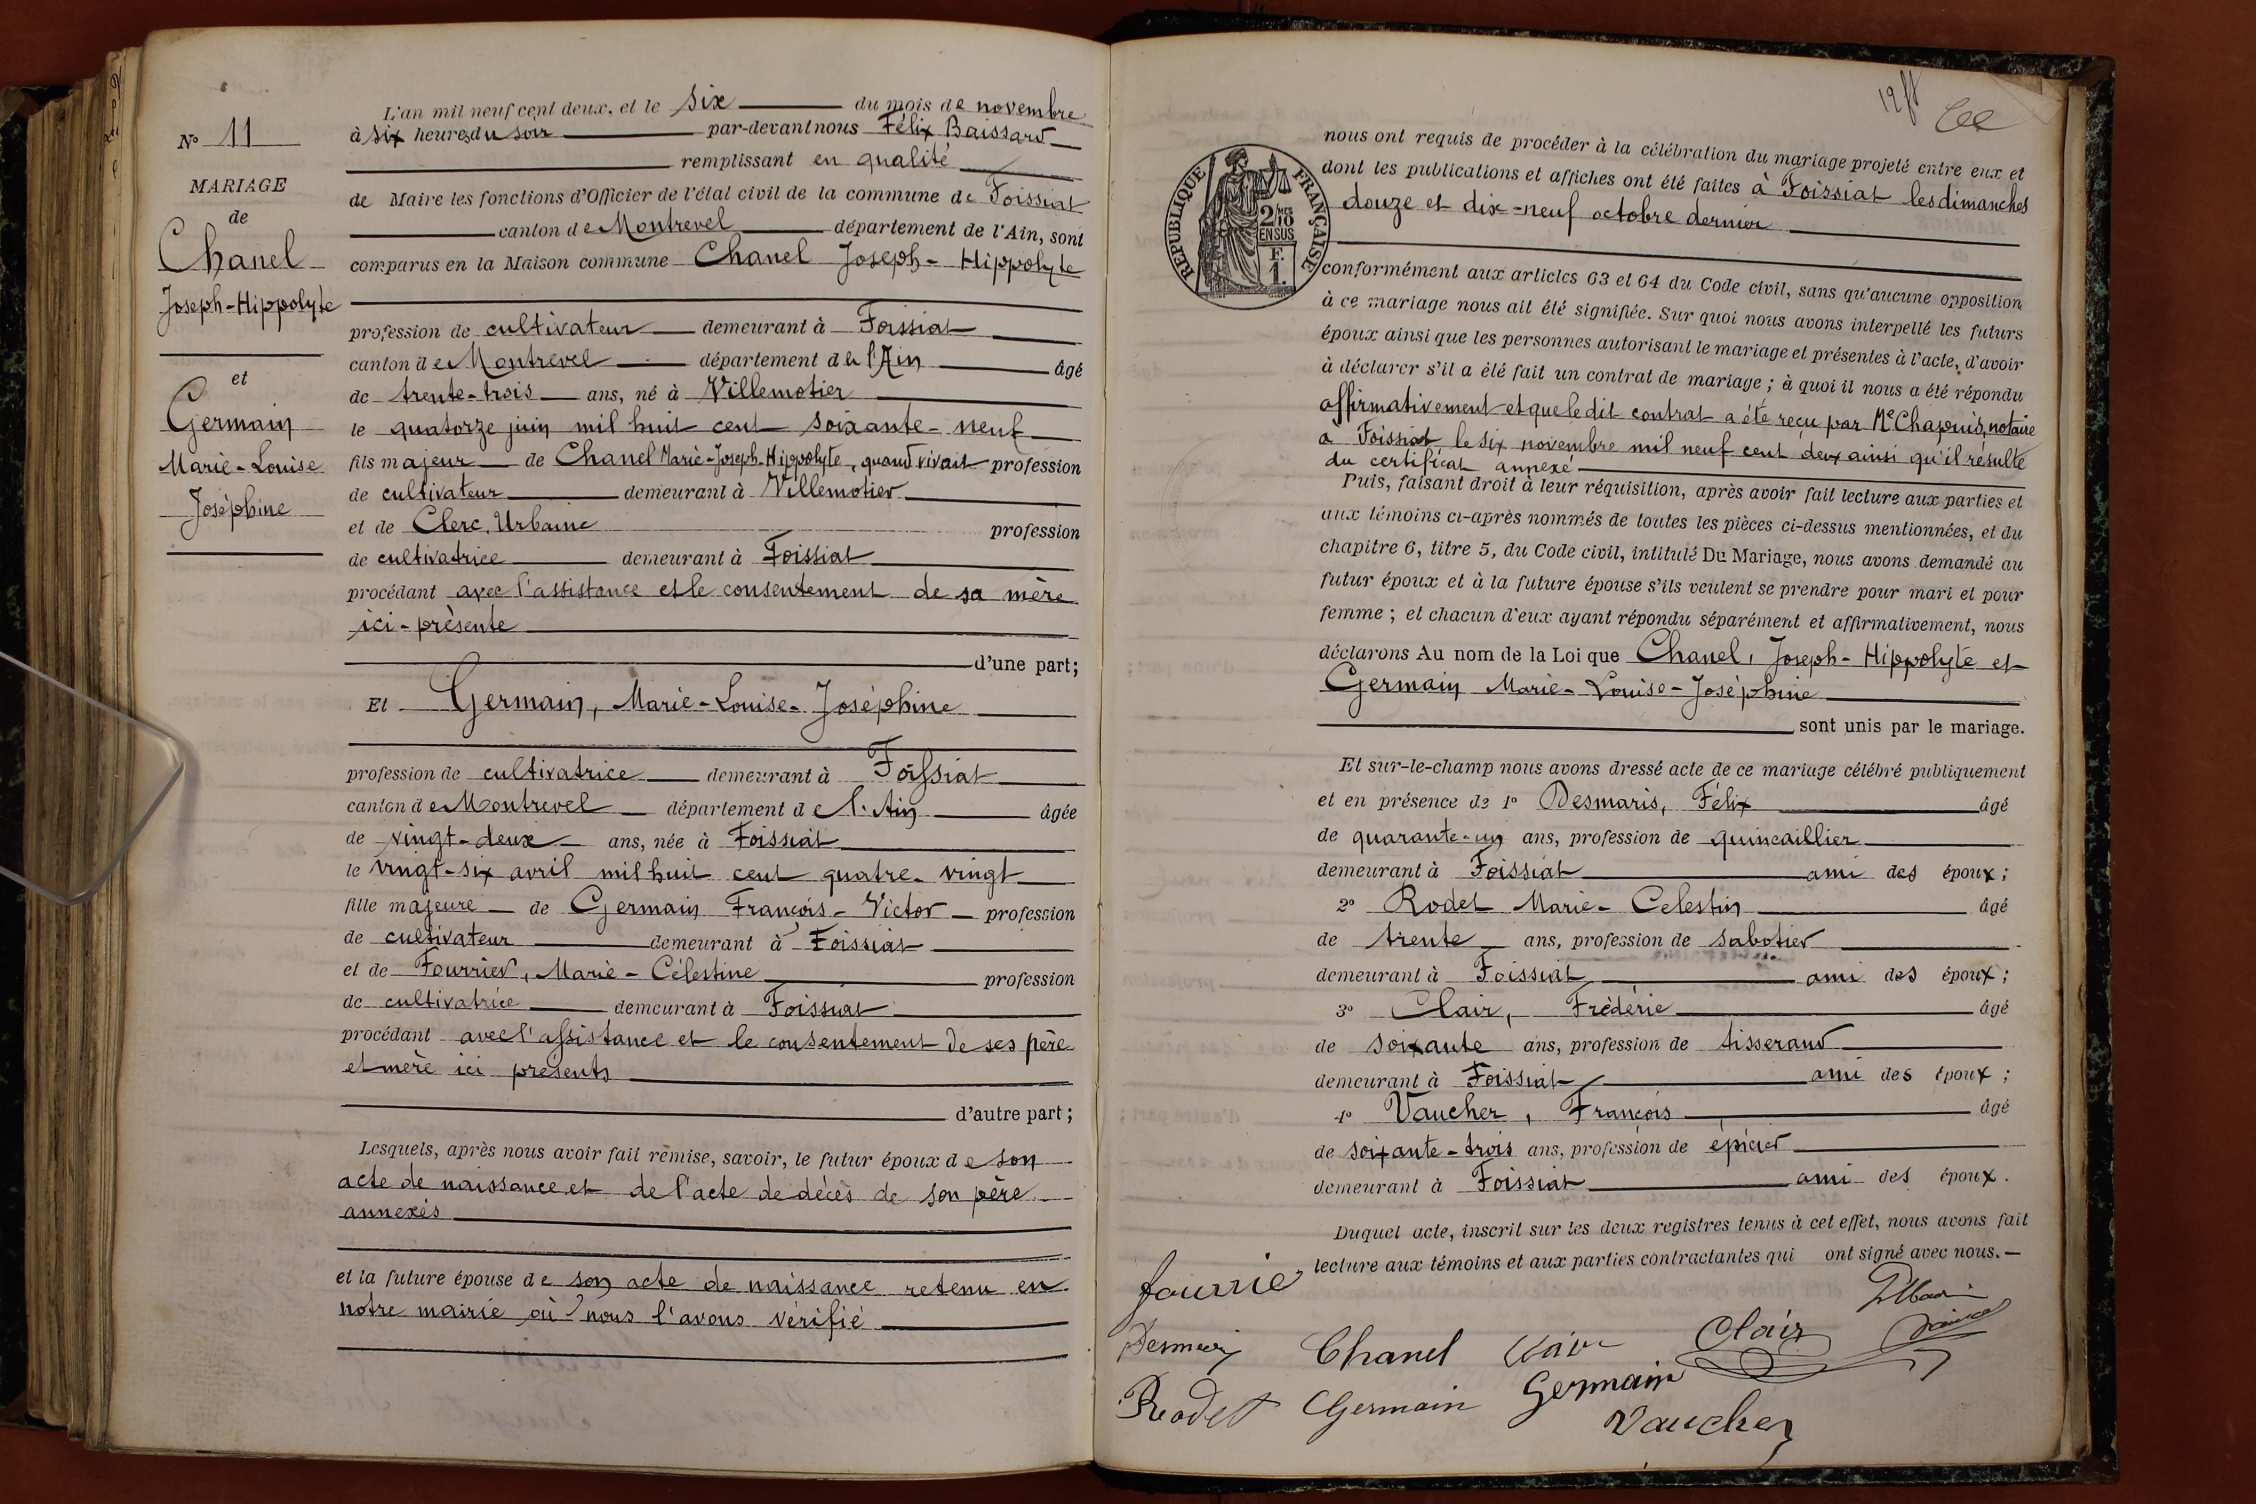 N° 11
MARIAGE
de
Chanel
Joseph-Hippolyte
et
Germain
Marie-Louise
Joséphine
L'an mil neuf cent deux, et le six du mois de novembre
à six heures du soir par-devant nous Félix Baissard
remplissant en qualité
de Maire les fonctions d'Officier de l'état civil de la commune de Foissiat
canton de Montrevel département de l'Ain, sont
comparus en la Maison commune Chanel Joseph-Hippolyte
profession de cultivateur demeurant à Foissiat
canton de Montrevel département de l'Ain âgé
de trente-trois ans, né à Villemotier
le quatorze juin mil huit cent soixante-neuf
fils majeur de Chanel Marie-Joseph-Hippolyte, quand vivait profession
de cultivateur demeurant à Villemotier
et de Clerc, Urbaine profession
de cultivatrice demeurant à Foissiat
procédant avec l'assistance et le consentement de sa mère
ici-présente
d'une part;
Et Germain, Marie-Louise-Joséphine
profession de cultivatrice demeurant à Foissiat
canton de Montrevel département de l'Ain âgée
de vingt-deux ans, née à Foissiat
le vingt-six avril mil huit cent quatre-vingt
fille majeure de Germain François-Victor profession
de cultivateur demeurant à Foissiat
et de Fourrier, Marie-Célestine profession
de cultivatrice demeurant à Foissiat
procédant avec l'assistance et le consentement de ses père
et mère ici presents
d'autre part;
Lesquels, après nous avoir fait remise, savoir, le futur époux de son
acte de naissance et de l'acte de décès de son père
annexés
et la future épouse de son acte de naissance retenu en
notre mairie où nous l'avons vérifié
RÉPUBLIQUE FRANÇAISE
2/10 EN SUS
F.
1.
nous ont requis de procéder à la célébration du mariage projeté entre eux et
dont les publications et affiches ont été faites à Foissiat les dimanches
douze et dix-neuf octobre dernier
conformément aux articles 63 et 64 du Code civil, sans qu'aucune opposition
à ce mariage nous ait été signifiée. Sur quoi nous avons interpellé les futurs
époux ainsi que les personnes autorisant le mariage et présentes à l'acte, d'avoir
à déclarer s'il a été fait un contrat de mariage; à quoi il nous a été répondu
affirmativement et que le dit contrat a été reçu par Me Chapuis, notaire
a Foissiat le six novembre mil neuf cent deux ainsi qu'il résulte
du certificat annexé
Puis, faisant droit à leur réquisition, après avoir fait lecture aux parties et
aux témoins ci-après nommés de toutes les pièces ci-dessus mentionnées, et du
chapitre 6, titre 5, du Code civil, intitulé Du Mariage, nous avons demandé au
futur époux et à la future épouse s'ils veulent se prendre pour mari et pour
femme; et chacun d'eux ayant répondu séparément et affirmativement, nous
déclarons Au nom de la Loi que Chanel, Joseph-Hippolyte et
Germain Marie-Louise-Joséphine
sont unis par le mariage.
Et sur-le-champ nous avons dressé acte de ce mariage célébré publiquement
et en présence de 1° Desmaris, Félix âgé
de quarante-un ans, profession de quincaillier
demeurant à Foissiat ami des époux;
2° Rodet Marie-Celestin âgé
de trente ans, profession de sabotier
demeurant à Foissiat ami des époux;
3° Clair, Fréderic âgé
de soixante ans, profession de tisserand
demeurant à Foissiat ami des époux;
4° Vaucher, François âgé
de soixante-trois ans, profession de épicier
demeurant à Foissiat ami des époux.
Duquel acte, inscrit sur les deux registres tenus à cet effet, nous avons fait
lecture aux témoins et aux parties contractantes qui ont signé avec nous.
fourrie
Chanel Clair
Rodet Germain Germain
Vaucher